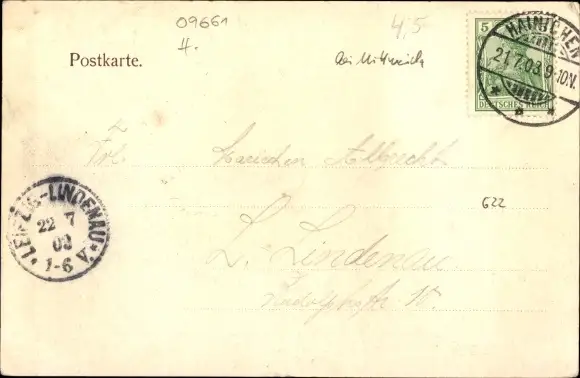 09661
H.
4,5
Postkarte.
bei Mittweida
5
DEUTSCHES REICH
HAINICHEN
21.7.03.9-10N.
Frl. Mariechen Albrecht
622
L. Lindenau
LEIPZIG-LINDENAU
22 7
03
1-6 V.